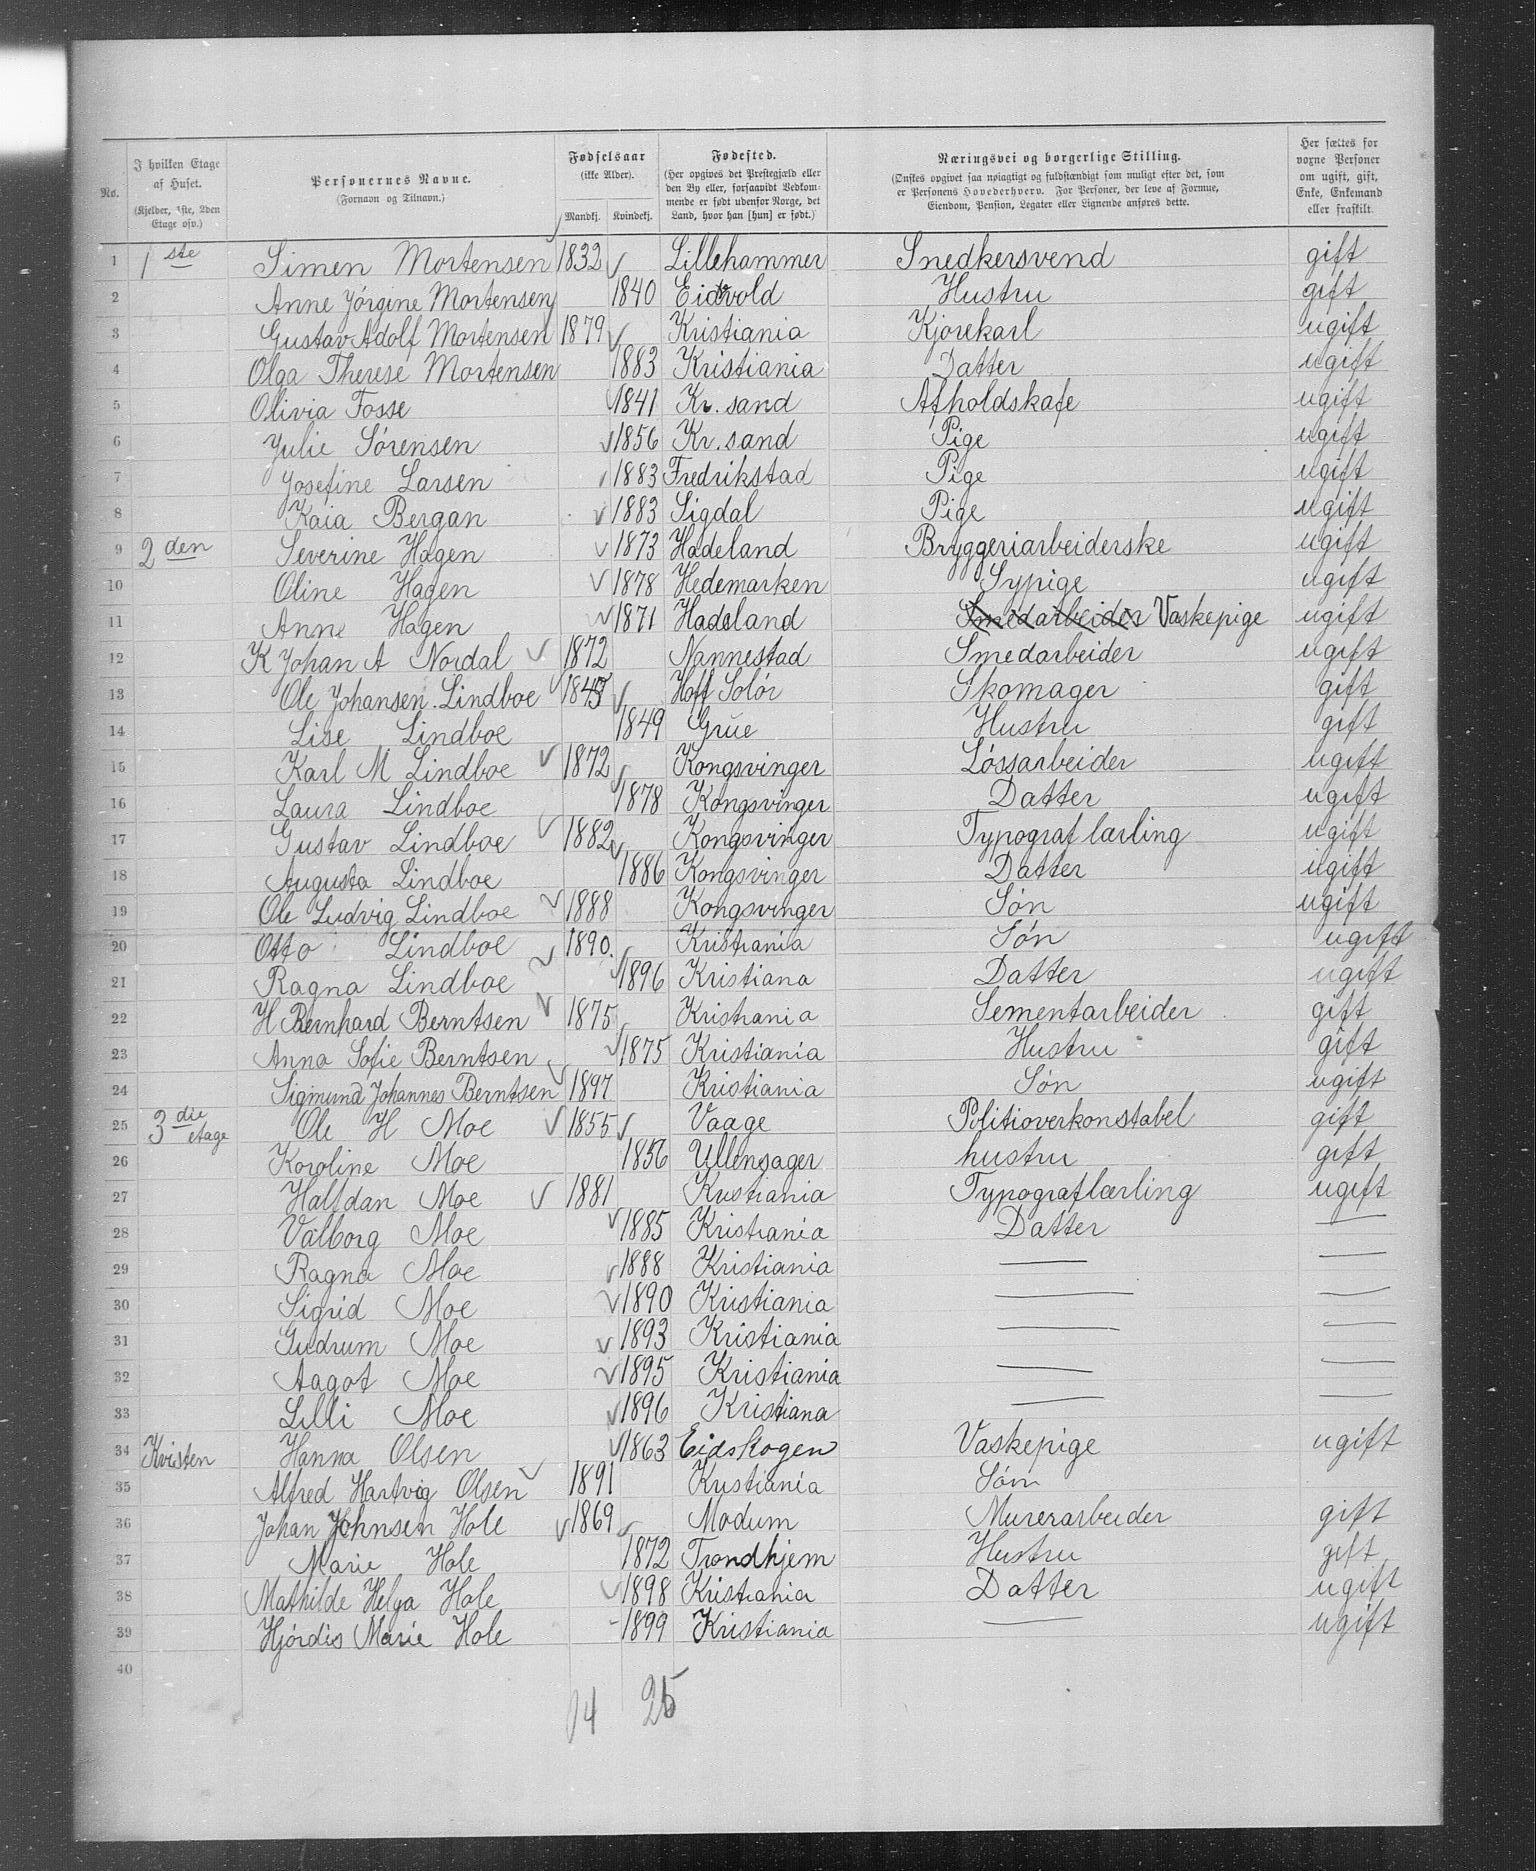 No.
I hvilken Etage af Huset.
(Kjelder, 1ste, 2den Etage osv.)
Personernes Navne.
(Fornavn og Tilnavn.)
Fødselsaar
(ikke Alder).
Mandkj. Kvindekj.
Fødested.
(Her opgives det Prestegjæld eller den By eller, forsaavidt Vedkommende er født udenfor Norge, det Land, hvor han [hun] er født.)
Næringsvei og borgerlige Stilling.
(Ønskes opgivet saa nøiagtigt og fuldstændigt som muligt efter det, som er Personens Hovederhverv. For Personer, der leve af Formue, Eiendom, Pension, Legater eller Lignende anføres dette.
Her sættes for voxne Personer om ugift, gift, Enke, Enkemand eller fraskilt.
1 1ste Simen Mortensen 1832 Lillehammer Snedkersvend gift
2 Anne Jörgine Mortensen 1840 Eidsvold Hustru gift
3 Gustav Adolf Mortensen 1879 Kristiania Kjørekarl ugift
4 Olga Therese Mortensen 1883 Kristiania Datter ugift
5 Olivia Fosse 1841 Kr. sand Afholdskafe ugift
6 Julie Sörensen 1856 Kr. sand Pige ugift
7 Josefine Larsen 1883 Fredrikstad Pige ugift
8 Kaia Bergan 1883 Sigdal Pige ugift
9 2den Severine Hagen 1873 Hadeland Bryggeriarbeiderske ugift
10 Oline Hagen 1878 Hedemarken Sypige ugift
11 Anne Hagen 1871 Hadeland Smedarbeider Vaskepige ugift
12 K Johan A Nordal 1872 Nannestad Smedarbeider ugift
13 Ole Johansen. Lindboe Hoff Solör Skomager gift
14 Lise Lindboe 1849 Grue Hustru gift
15 Karl M Lindboe 1872 Kongsvinger Løssarbeider ugift
16 Laura Lindboe 1878 Kongsvinger Datter ugift
17 Gustav Lindboe 1882 Kongsvinger Typograf lærling ugift
18 Augusta Lindboe 1886 Kongsvinger Datter ugift
19 Ole Ludvig Lindboe 1888 Kongsvinger Søn ugift
20 Otto Lindboe 1890. Kristiania Søn ugift
21 Ragna Lindboe 1896 Kristiana Datter ugift
22 H Bernhard Berntsen 1875 Kristiania Sementarbeider gift
23 Anna Sofie Berntsen 1875 Kristiania Hustru gift
24 Sigmund Johannes Berntsen 1897 Kristiania Søn ugift
25 3die etage Ole H Moe 1855 Vaage Politioverkonstabel gift
26 Karoline Moe 1856 Ullensager hustru gift
27 Halfdan Moe 1881 Kristiania Typograflærling ugift
28 Valborg Moe 1885 Kristiania Datter —
29 Ragna Moe 1888 Kristiania — —
30 Sigrid Moe 1890 Kristiania — —
31 Gudrum Moe 1893 Kristiania — —
32 Aagot Moe 1895 Kristiania — —
33 Lilli Moe 1896 Kristiana — —
34 Kvisten Hanna Olsen 1863 Eidskogen Vaskepige ugift
35 Alfred Hartvig Olsen 1891 Kristiania Søn
36 Johan Johnsen Hole 1869 Modum Murerarbeider gift
37 Marie Hole 1872 Trondhjem Hustru gift
38 Mathilde Helga Hole 1898 Kristiania Datter ugift
39 Hjórdis Marie Hole 1899 Kristiania — ugift
40
14 25